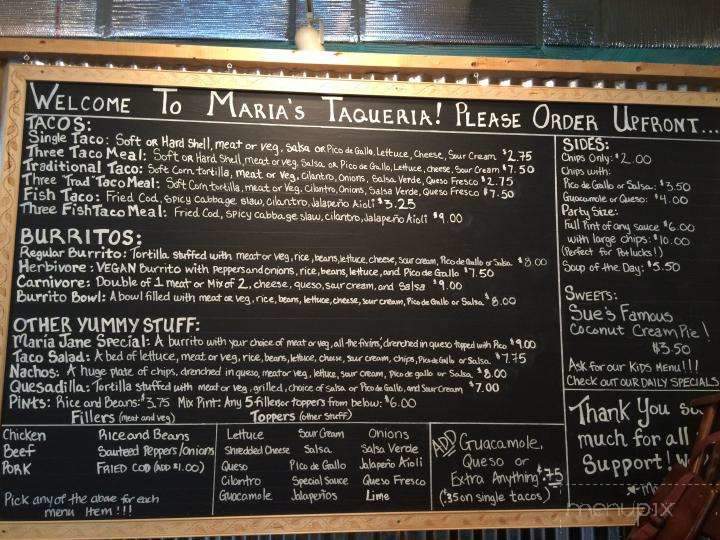 WELCOME TO MARIA'S TAQUERIA! PLEASE ORDER UPFRONT...
TACOS:
Single Taco: Soft or Hard Shell, meat or veg, salsa or Pico de Gallo, Lettuce, Cheese, Sour Cream $2.75
Three Taco Meal: Soft or Hard Shell, meat or veg, Salsa or Pico de Gallo, Lettuce, cheese, Sour Cream $7.50
Traditional Taco: Soft Corn tortilla, meat or Veg, Cilantro, Onions, Salsa Verde, Queso Fresco $2.75
Three "Trad" Taco Meal: Soft Corn tortilla, meat or Veg, Cilantro, Onions, Salsa Verde, Queso Fresco $7.50
Fish Taco: Fried Cod, spicy cabbage slaw, cilantro, Jalapeño Aioli $3.25
Three Fish Taco Meal: Fried Cod, spicy cabbage slaw, cilantro, Jalapeño Aioli $9.00
BURRITOS:
Regular Burrito: Tortilla stuffed with meat or veg, rice, beans, lettuce, cheese, sour cream, Pico de Gallo or Salsa $8.00
Herbivore: VEGAN Burrito with peppers and onions, rice, beans, lettuce, and Pico de Gallo $7.50
Carnivore: Double of 1 meat or Mix of 2, cheese, queso, sour cream, and Salsa $9.00
Burrito Bowl: A bowl filled with meat or veg, rice, beans, lettuce, cheese, sour cream, Pico de Gallo or Salsa $8.00
OTHER YUMMY STUFF:
Maria Jane Special: A burrito with your choice of meat or veg, all the fixins', drenched in queso topped with Pico $9.00
Taco Salad: A bed of lettuce, meat or veg, rice, beans, lettuce, cheese, sour cream, chips, Pico de Gallo or Salsa $7.75
Nachos: A huge plate of chips, drenched in queso, meat or veg, lettuce, sour cream, Pico de gallo or Salsa $8.00
Quesadilla: Tortilla stuffed with meat or veg, grilled, choice of salsa or Pico de Gallo, and Sour Cream $7.00
Pints: Rice and Beans: $3.75 Mix Pint: Any 5 fillers or toppers from below: $6.00
Fillers (meat and veg)
Chicken Rice and Beans
Beef Sauteed Peppers/onions
PORK FRIED COD (ADD $1.00)
Pick any of the above for each
menu Item!!!
Toppers (other stuff)
Lettuce Sour Cream Onions
Shredded Cheese Salsa Salsa Verde
Queso Pico de Gallo Jalapeño Aioli
Cilantro Special Sauce Queso Fresco
Guacamole Jalapeños Lime
ADD Guacamole,
Queso or
Extra Anything $.75
($.35 on single tacos)
SIDES:
Chips Only: $2.00
Chips with:
Pico de Gallo or Salsa: $3.50
Guacamole or Queso: $4.00
Party Size:
Full Pint of any sauce $6.00
with large chips: $10.00
(Perfect for Potlucks!)
Soup of the Day: $5.50
SWEETS:
Sue's Famous
Coconut Cream Pie!
$3.50
Ask for our KIDS MENU!!!
Check out OUR DAILY SPECIALS
Thank You
much for all
Support!
menupix